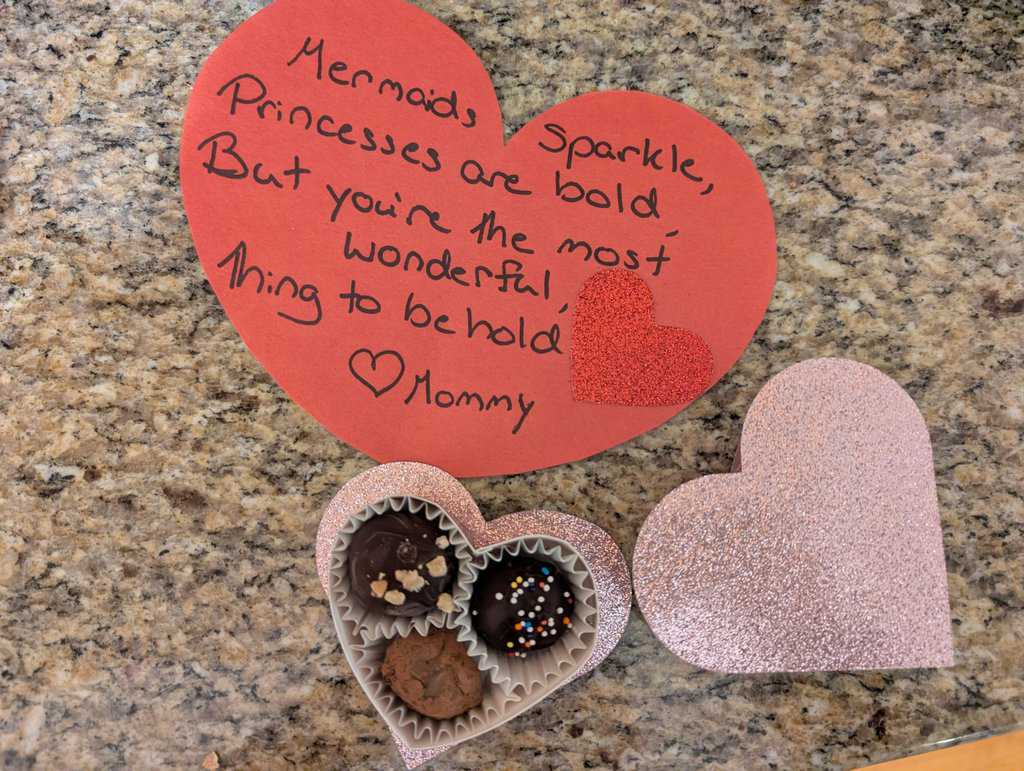 Mermaids Sparkle,
Princesses are bold,
But you're the most
wonderful,
thing to behold
♡Mommy